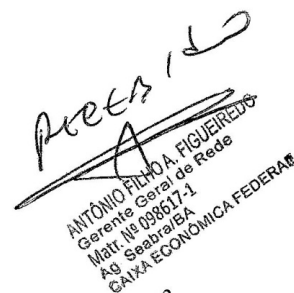 ANTÔNIO FILHO A. FIGUEIREDO
Gerente Geral de Rede
Matr. Nº 098617-1
Ag Seabra/BA
CAIXA ECONÔMICA FEDERAL